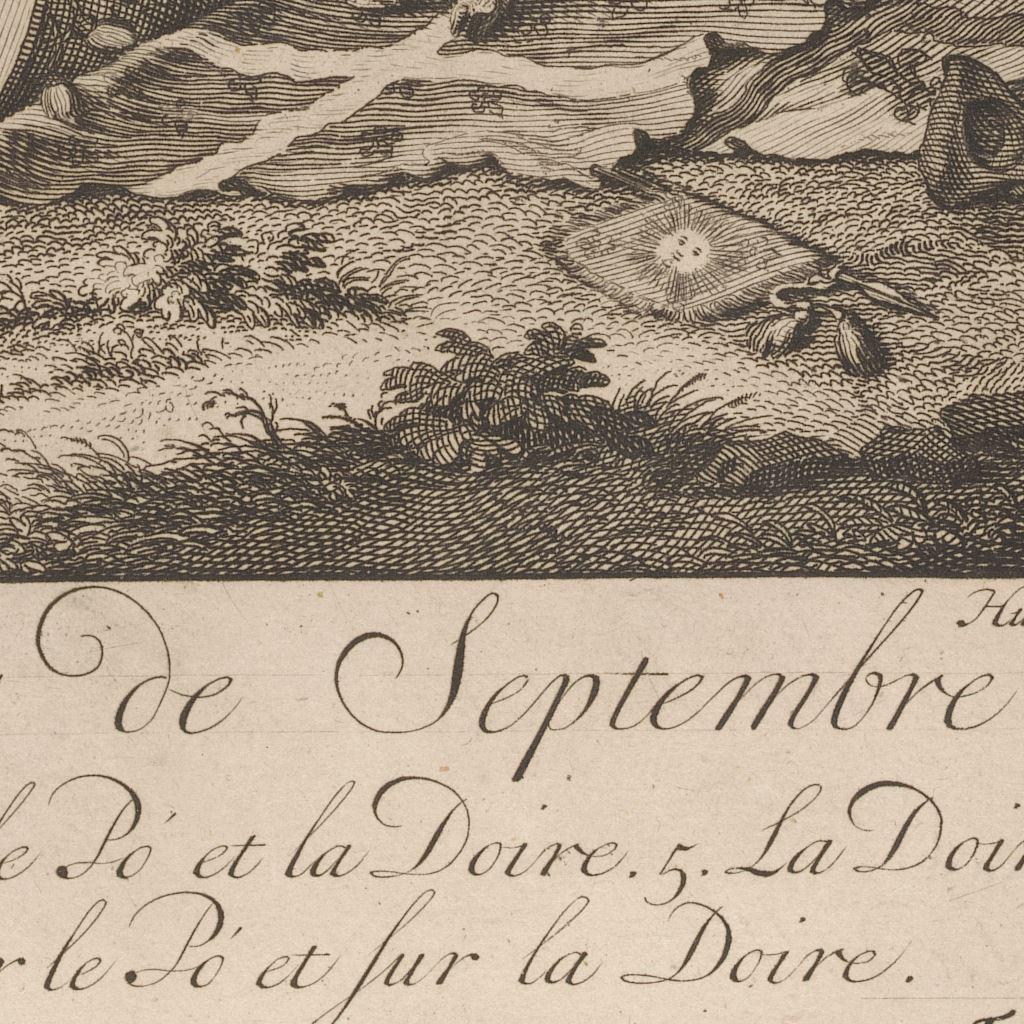 de Septembre
le Pó et la Doire. 5. La Doir
r le Pó et sur la Doire.